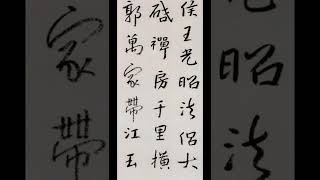 侯王光昭法侶大
砥禪房千里橫
郭萬家帶江玉